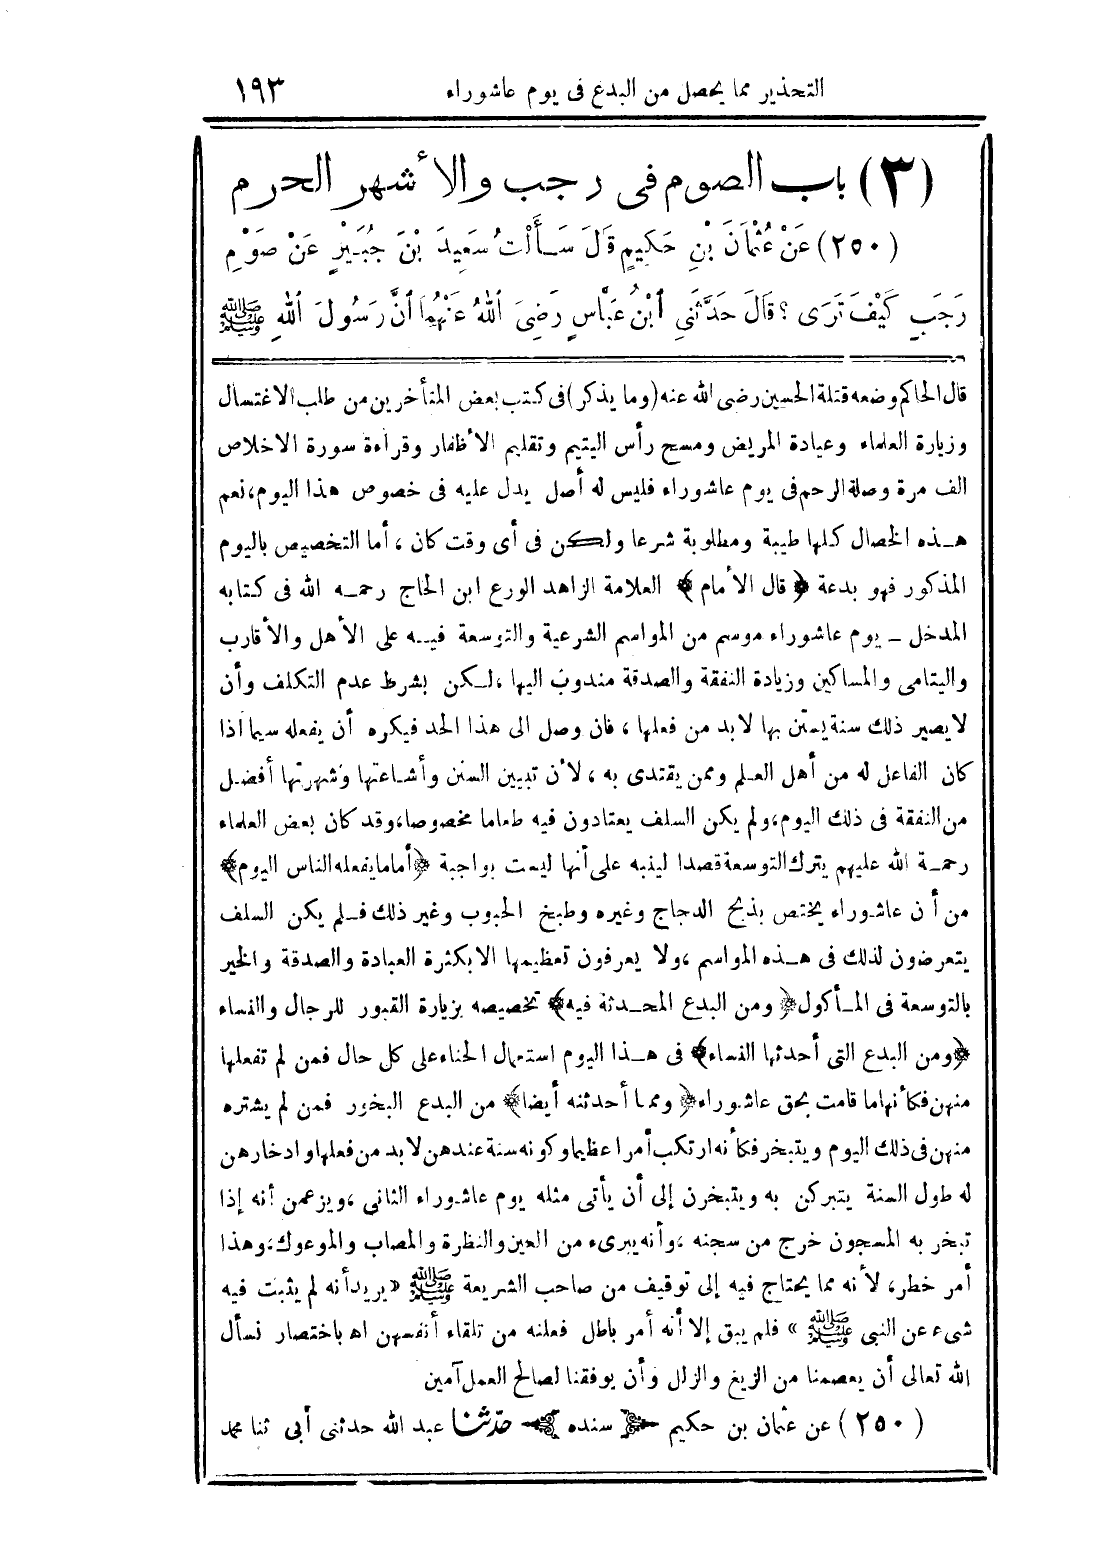 التحذير مما يحصل من البدع فى يوم عاشوراء ١٩٣
(٣) باب الصوم فى رجب والأشهر الحرم
(٢٥٠) عَنْ عُثْمَانَ بْنِ حَكِيمٍ قَالَ سَأَلْتُ سَعِيدَ بْنَ جُبَيْرٍ عَنْ صَوْمِ
رَجَبٍ كَيْفَ تَرَى ؟ قَالَ حَدَّثَنِى ابْنُ عَبَّاسٍ رَضِىَ اللهُ عَنْهُمَا أَنَّ رَسُولَ اللهِ ﷺ
قال الحاكم وضعه قتلة الحسين رضى الله عنه (وما يذكر) فى كتب بعض المتأخرين من طلب الاغتسال
وزيارة العلماء وعيادة المريض ومسح رأس اليتيم وتقليم الأظفار وقراءة سورة الاخلاص
الف مرة وصلة الرحم فى يوم عاشوراء فليس له أصل يدل عليه فى خصوص هذا اليوم، نعم
هـذه الخصال كلها طيبة ومطلوبة شرعا ولكن فى أى وقت كان ، أما التخصيص باليوم
المذكور فهو بدعة ﴿ قال الأمام ﴾ العلامة الزاهد الورع ابن الحاج رحمـه الله فى كتابه
المدخل ـ يوم عاشوراء موسم من المواسم الشرعية والتوسعة فيـه على الأهل والأقارب
واليتامى والمساكين وزيادة النفقة والصدقة مندوب اليها ، لـكن بشرط عدم التكلف وأن
لا يصير ذلك سنة يستن بها لابد من فعلها ، فان وصل الى هذا الحد فيكره أن يفعله سيما اذا
كان الفاعل له من أهل العـلم وممن يقتدى به ، لأن تبيين السنن وأشاعتها وشهرتها أفضـل
من النفقة فى ذلك اليوم، ولم يكن السلف يعتادون فيه طعاما مخصوصا، وقد كان بعض العلماء
رحمـة الله عليهم يترك التوسعة قصدا لينبه على أنها ليست بواجبة ﴿أما ما يفعله الناس اليوم﴾
من أن عاشوراء يختص بذبح الدجاج وغيره وطبخ الحبوب وغير ذلك فـلم يكن السلف
يتعرضون لذلك فى هـذه المواسم ، ولا يعرفون تعظيمها الا بكثرة العبادة والصدقة والخير
بالتوسعة فى المـأكول ﴿ ومن البدع المحـدثة فيه﴾ تخصيصه بزيارة القبور للرجال والنساء
﴿ومن البدع التى أحدثها النساء﴾ فى هـذا اليوم استعمال الحناء على كل حال فمن لم تفعلها
منهن فكأنها ما قامت بحق عاشوراء ﴿ ومما أحدثنه أيضا﴾ من البدع البخور فمن لم يشتره
منهن فى ذلك اليوم ويتبخر فكأنه ارتكب أمرا عظيما وكونه سنة عندهن لابد من فعلها وادخارهن
له طول السنة يتبركن به ويتبخرن إلى أن يأتى مثله يوم عاشوراء الثانى ، ويزعمن أنه إذا
تبخر به المسجون خرج من سجنه ، وأنه يبرىء من العين والنظرة والمصاب والموعوك، وهذا
أمر خطر، لأنه مما يحتاج فيه إلى توقيف من صاحب الشريعة ﷺ « يريد أنه لم يثبت فيه
شىء عن النبى ﷺ » فلم يبق إلا أنه أمر باطل فعلنه من تلقاء أنفسهن اه باختصار نسأل
الله تعالى أن يعصمنا من الزيغ والزلل وأن يوفقنا لصالح العمل آمين
(٢٥٠) عن عثمان بن حكيم سنده حدّثنا عبد الله حدثنى أبى ثنا محمد